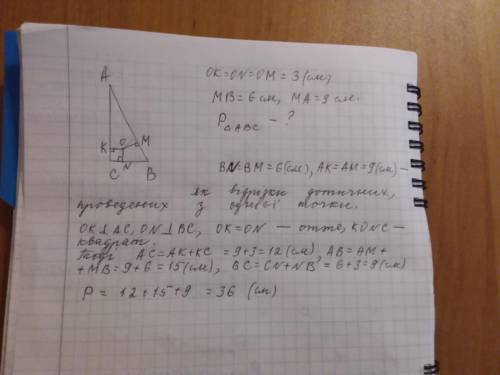 A
OK=ON=OM = 3 (см)
MB=6 см, MA=9 см.
P△ABC – ?
K O M
C N B
BN=BM = 6(см), AK=AM=9(см) –
як відрізки дотичних,
проведених з однієї точки.
OK⊥AC, ON⊥BC, OK=ON — отже, KONC –
квадрат.
Тоді AC=AK+KC = 9+3=12 (см), AB=AM+
+MB=9+6=15(см), BC=CN+NB = 6+3=9(см)
P = 12+15+9 = 36 (см)